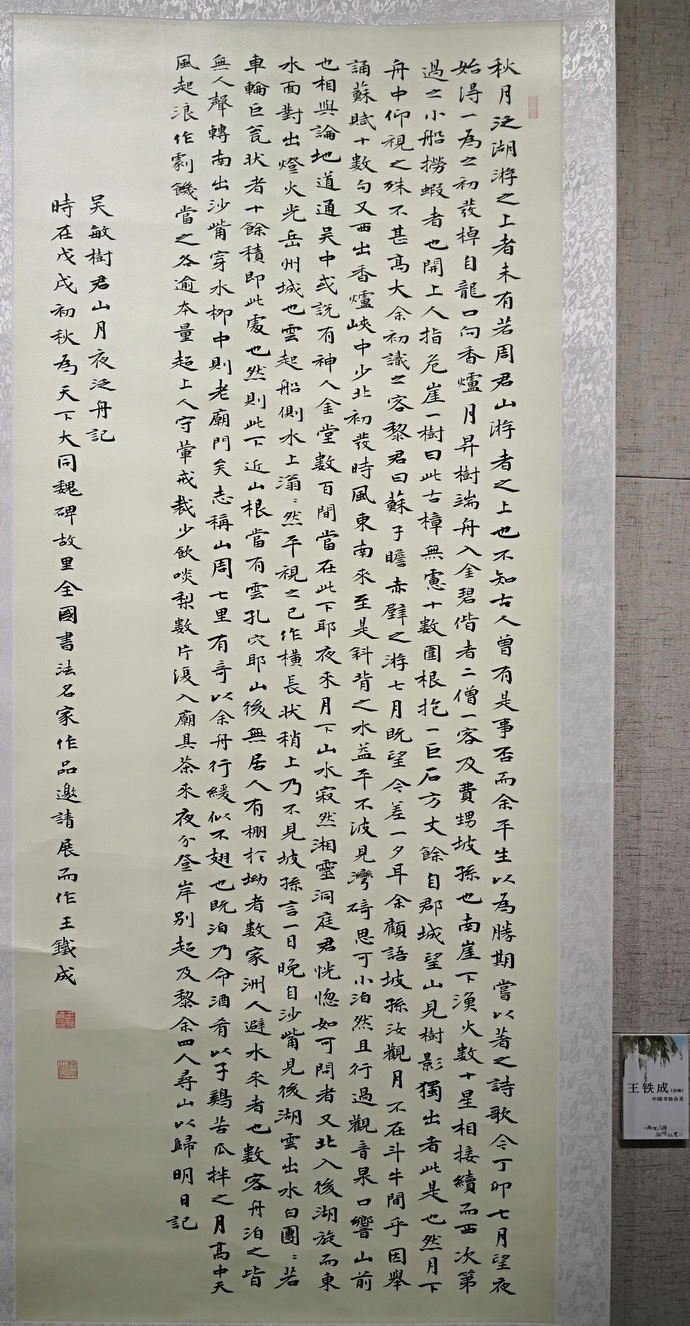 秋月泛湖游之上者未有若周君山游者之上也不知古人曾有是事否而余平生以為勝期嘗以著之詩歌今丁卯七月望夜
始得一為之初發棹自龍口向香爐月昇樹端舟入金碧偕者二僧一客及費甥坡孫也南崖下漁火數十星相接續而西次第
過之小船撈蝦者也開上人指危崖一樹曰此古樟無慮十數圍根抱一巨石方丈餘自郡城望山見樹影獨出者此是也然月下
舟中仰視之殊不甚高大余初識之客黎君曰蘇子瞻赤壁之游七月既望今差一夕耳余顧語坡孫汝觀月不在斗牛間乎因舉
誦蘇賦十數句又西出香爐峽中少北初發時風東南來至是斜背之水益平不波見灣碕思可小泊然且行過觀音泉口響山前
也相與論地道通吳中或說有神人金堂數百間當在此下耶夜來月下山水寂然湘靈洞庭君恍惚如可問者又北入後湖旋而東
水面對出燈火光岳州城也雲起船側水上滃〻然平視之已作橫長狀稍上乃不見坡孫言一日晚自沙觜見後湖雲出水白團〻若
車輪巨瓮狀者十餘積即此處也然則此下近山根當有雲孔穴耶山後無居人有棚於坳者數家洲人避水來者也數客舟泊之皆
無人聲轉南出沙觜穿水柳中則老廟門矣志稱山周七里有奇以余舟行緩似不翅也既泊乃命酒肴以子鷄苦瓜拌之月高中天
風起浪作劇飲當之各逾本量超上人守葷戒裁少飲啖梨數片復入廟具茶來夜分登岸別超及黎余四人尋山以歸明日記
吴敏樹君山月夜泛舟記
時在戊戌初秋為天下大同魏碑故里全國書法名家作品邀請展而作王鐵成
王铁成
中国书协会员